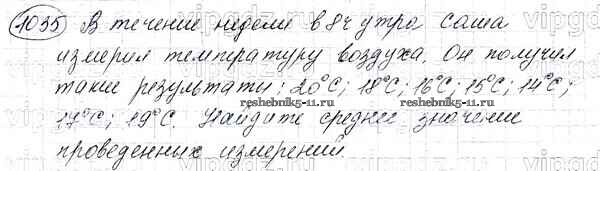 1035 В течение недели в 8 ч утра Саша
измерял температуру воздуха. Он получил
такие результаты: 20°С; 18°С; 16°С; 15°С; 14°С;
17°С; 19°С. Найдите среднее значение
reshebnik5-11.ru reshebnik5-11.ru
проведенных измерений.